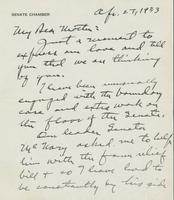 SENATE CHAMBER
Apr. 27, 1933
My Dear Mother:
Just a moment to
express our love and tell
you that we are thinking
of you.
I have been unusually
engaged with the boundary
case and extra work on
the floor of the Senate.
Our leader Senator
McNary asked me to help
him with the farm relief
bill & so I have had to
be constantly by his side